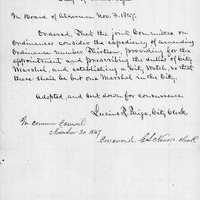 City of Cambridge.
In Board of Aldermen Nov. 3. 1847.
Ordered, That the joint Committee on
Ordinances consider the expediency of amending
Ordinance Number Thirteen, providing for the
appointment and prescribing the duties of City
Marshal, and establishing a City Watch, so that
there shall be but one Marshal in the City.
Adopted, and sent down for concurrence.
Lucius R. Paige, City Clerk
In Common Council
November 30 1847
Concurred
Clerk